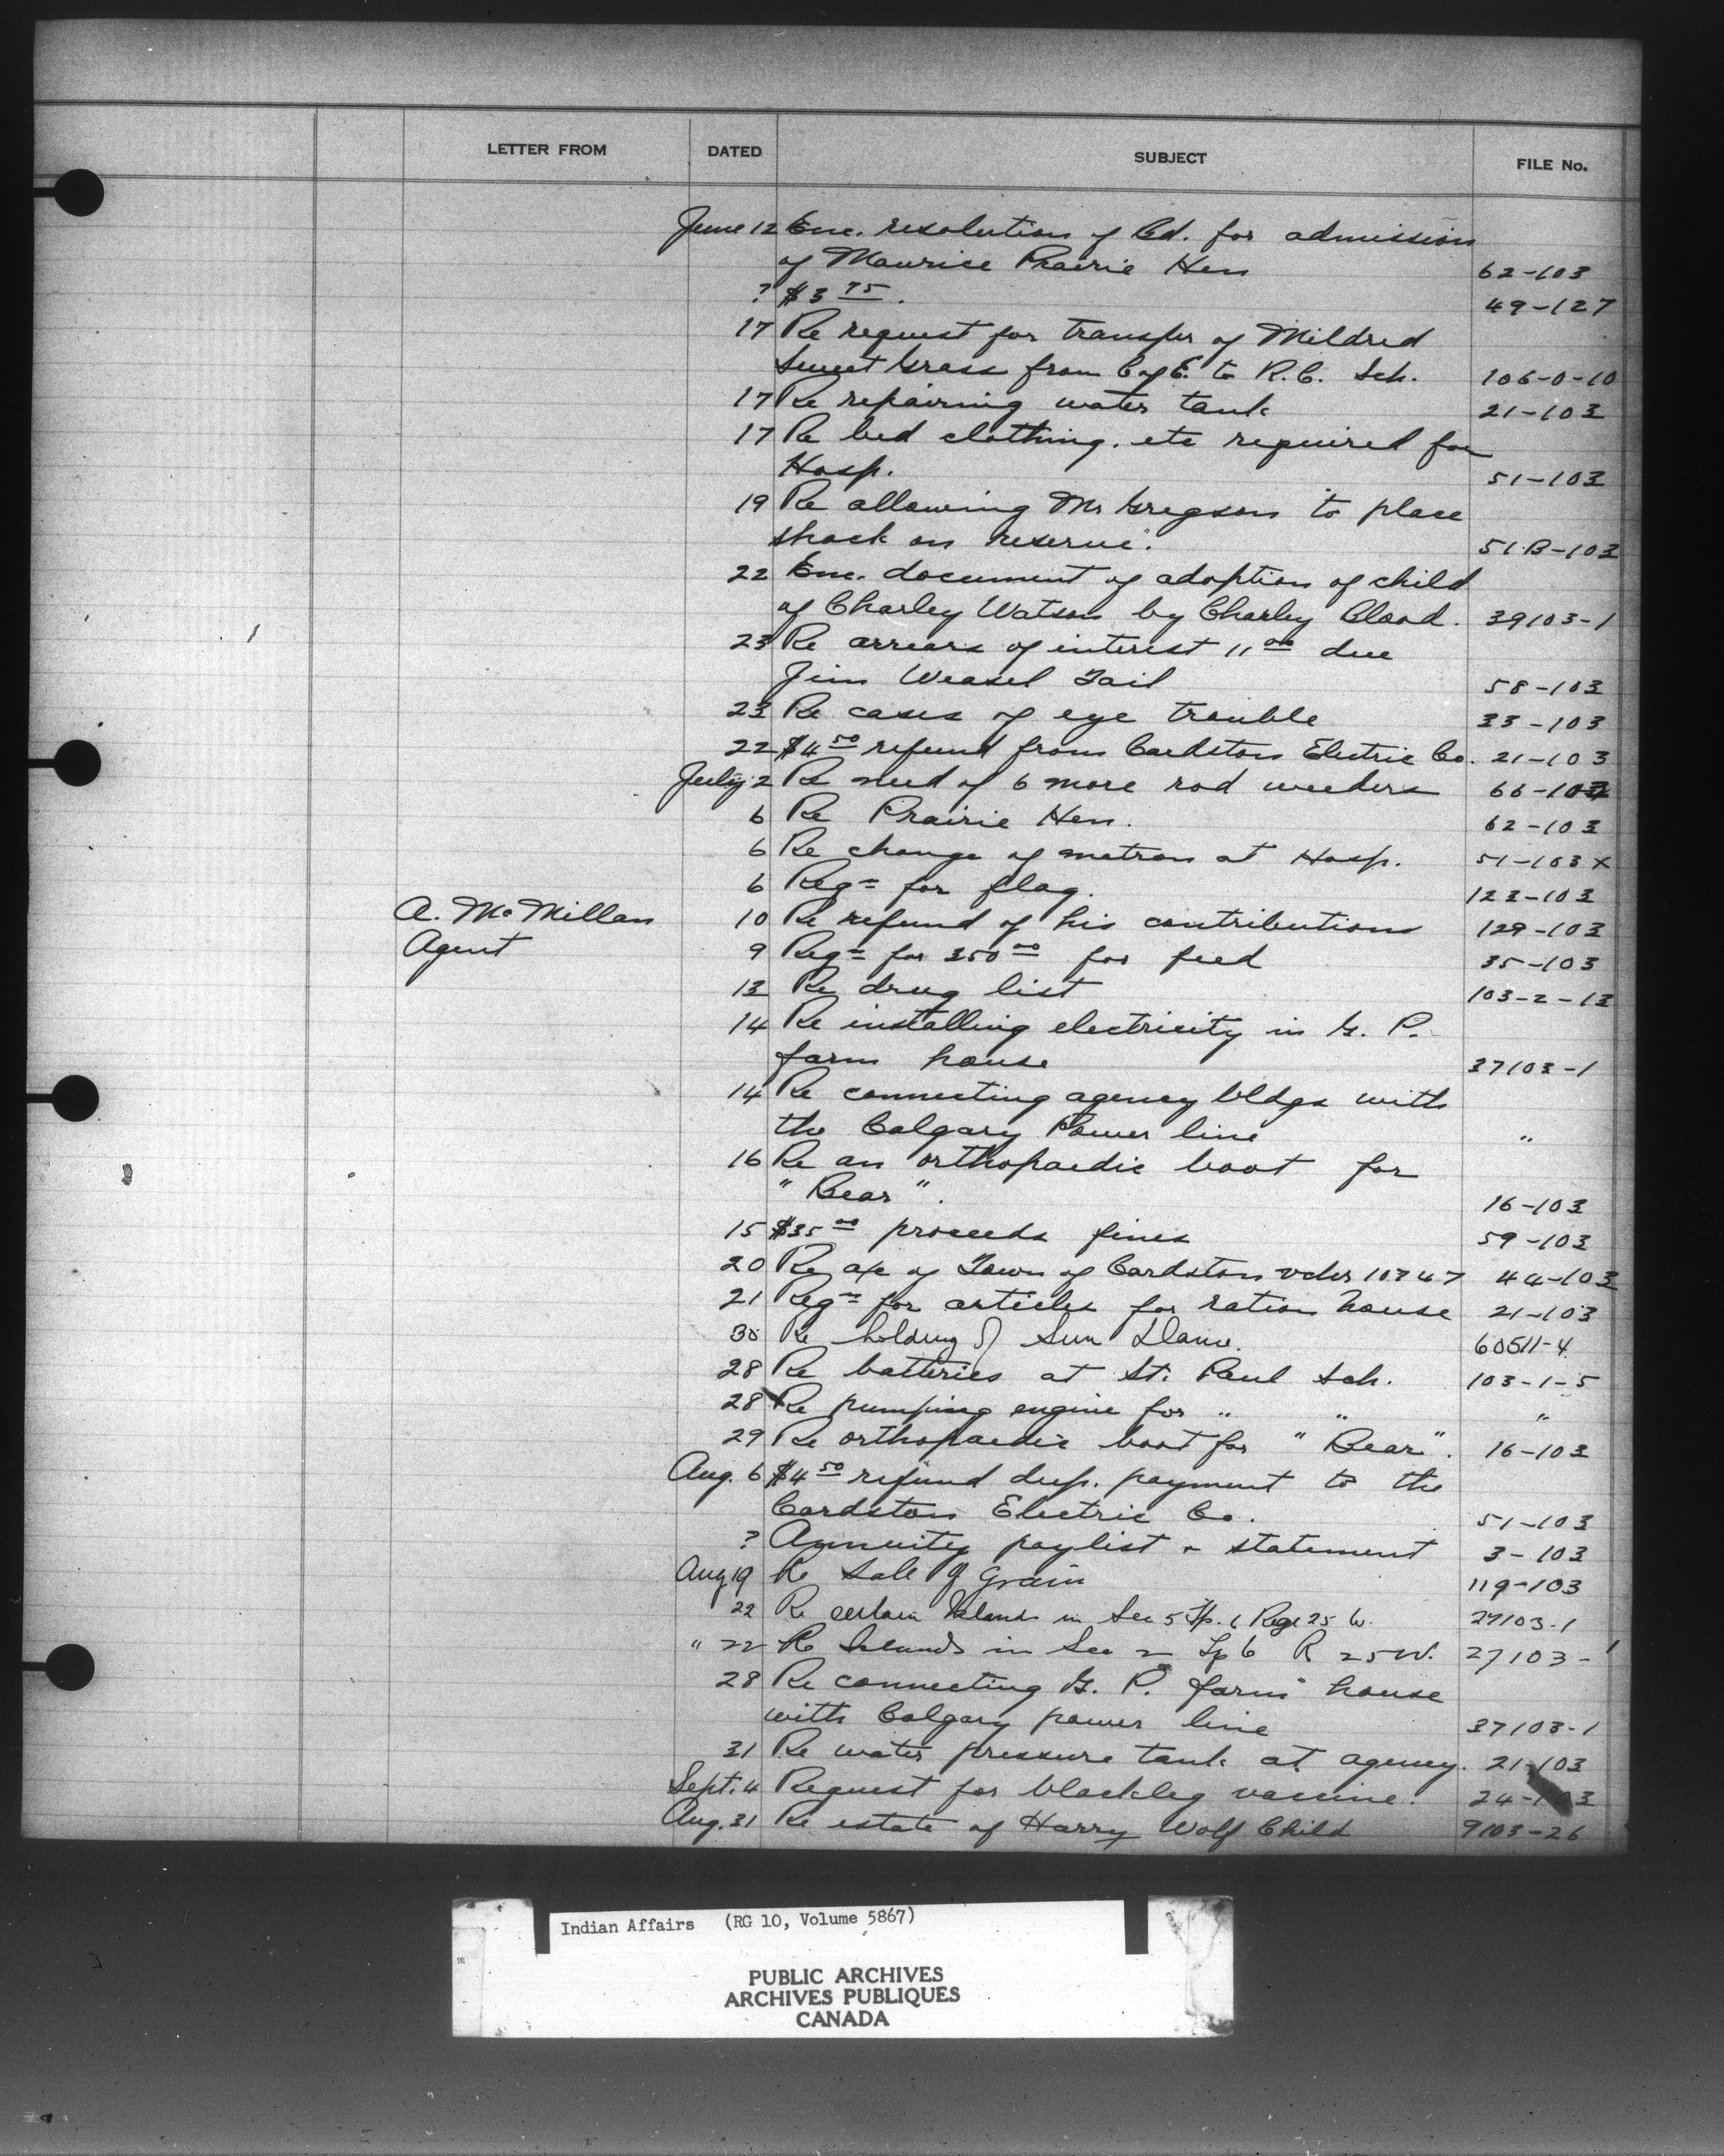 LETTER FROM DATED SUBJECT FILE No.
June 12 Enc. resolution of Bd. for admission
of Maurice Prairie Hen 62-103
? $3 75. 49-127
17 Re request for transfer of Mildred
Sweet Grass from C of E. to R.C. Sch. 106-0-10
17 Re repairing water tank 21-103
17 Re bed clothing. etc required for
Hosp. 51-103
19 Re allowing Mr Gregson to place
shack on reserve. 51B-103
22 Enc. document of adoption of child
of Charley Watson by Charley Blood. 39103-1
23 Re arrears of interest 11 00 due
Jim Weasel Tail 58-103
23 Re cases of eye trouble 33-103
22 $4 50 refund from Cardston Electric Co. 21-103
July 2 Re need of 6 more rod weeders 66-103
6 Re Prairie Hen. 62-103
6 Re change of matron at Hosp. 51-103 x
6 Reqn for flag. 123-103
A. McMillan 10 Re refund of his contributions 129-103
Agent 9 Reqn for 350 00 for feed 35-103
13 Re drug list 103-2-13
14 Re installing electricity in G. P.
farm house 37103-1
14 Re connecting agency bldgs with
the Calgary Power line "
16 Re an orthopaedic boot for
"Bear". 16-103
15 $35 00 proceeds fines 59-103
20 Re a/c of Town of Cardston vcher 10747 44-103
21 Reqn for articles for ration house 21-103
30 Re holding of Sun Dance. 60511-4
28 Re batteries at St. Paul Sch. 103-1-5
28 Re pumping engine for " " "
29 Re orthopaedic boot for "Bear". 16-103
Aug. 6 $4 50 refund dup. payment to the
Cardston Electric Co. 51-103
? Annuity paylist & statement 3-103
Aug 19 Re Sale of Grain 119-103
22 Re certain Islands in Sec 5 Tp. 6 Rge 25 W. 27103-1
" 22 Re Islands in Sec 2 Tp 6 R 25 W. 27103-1
28 Re connecting G. P. farm house
with Calgary power line 37103-1
31 Re water pressure tank at agency. 21-103
Sept. 4 Request for blackleg vaccine. 24-103
Aug. 31 Re estate of Harry Wolf Child 9103-26
Indian Affairs (RG 10, Volume 5867)
PUBLIC ARCHIVES
ARCHIVES PUBLIQUES
CANADA